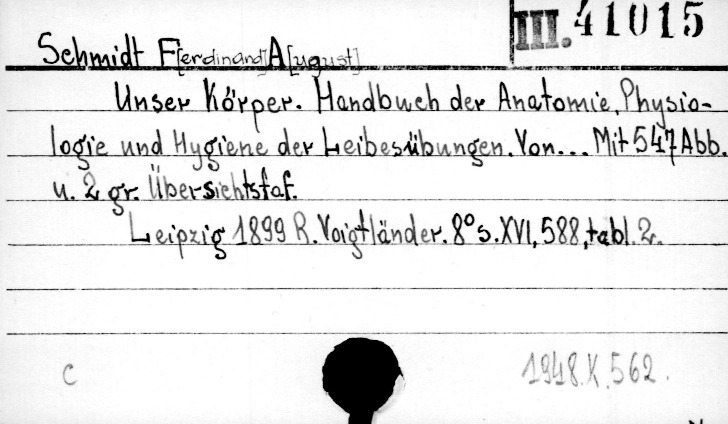 III. 41015
Schmidt F[erdinand] A[ugust]
Unser Körper. Handbuch der Anatomie, Physio-
logie und Hygiene der Leibesübungen. Von... Mit 547 Abb.
u. 2 gr. Übersichtstaf.
Leipzig 1899 R. Voigtländer. 8° s. XVI, 588, tabl. 2.
c
1948.K.562.